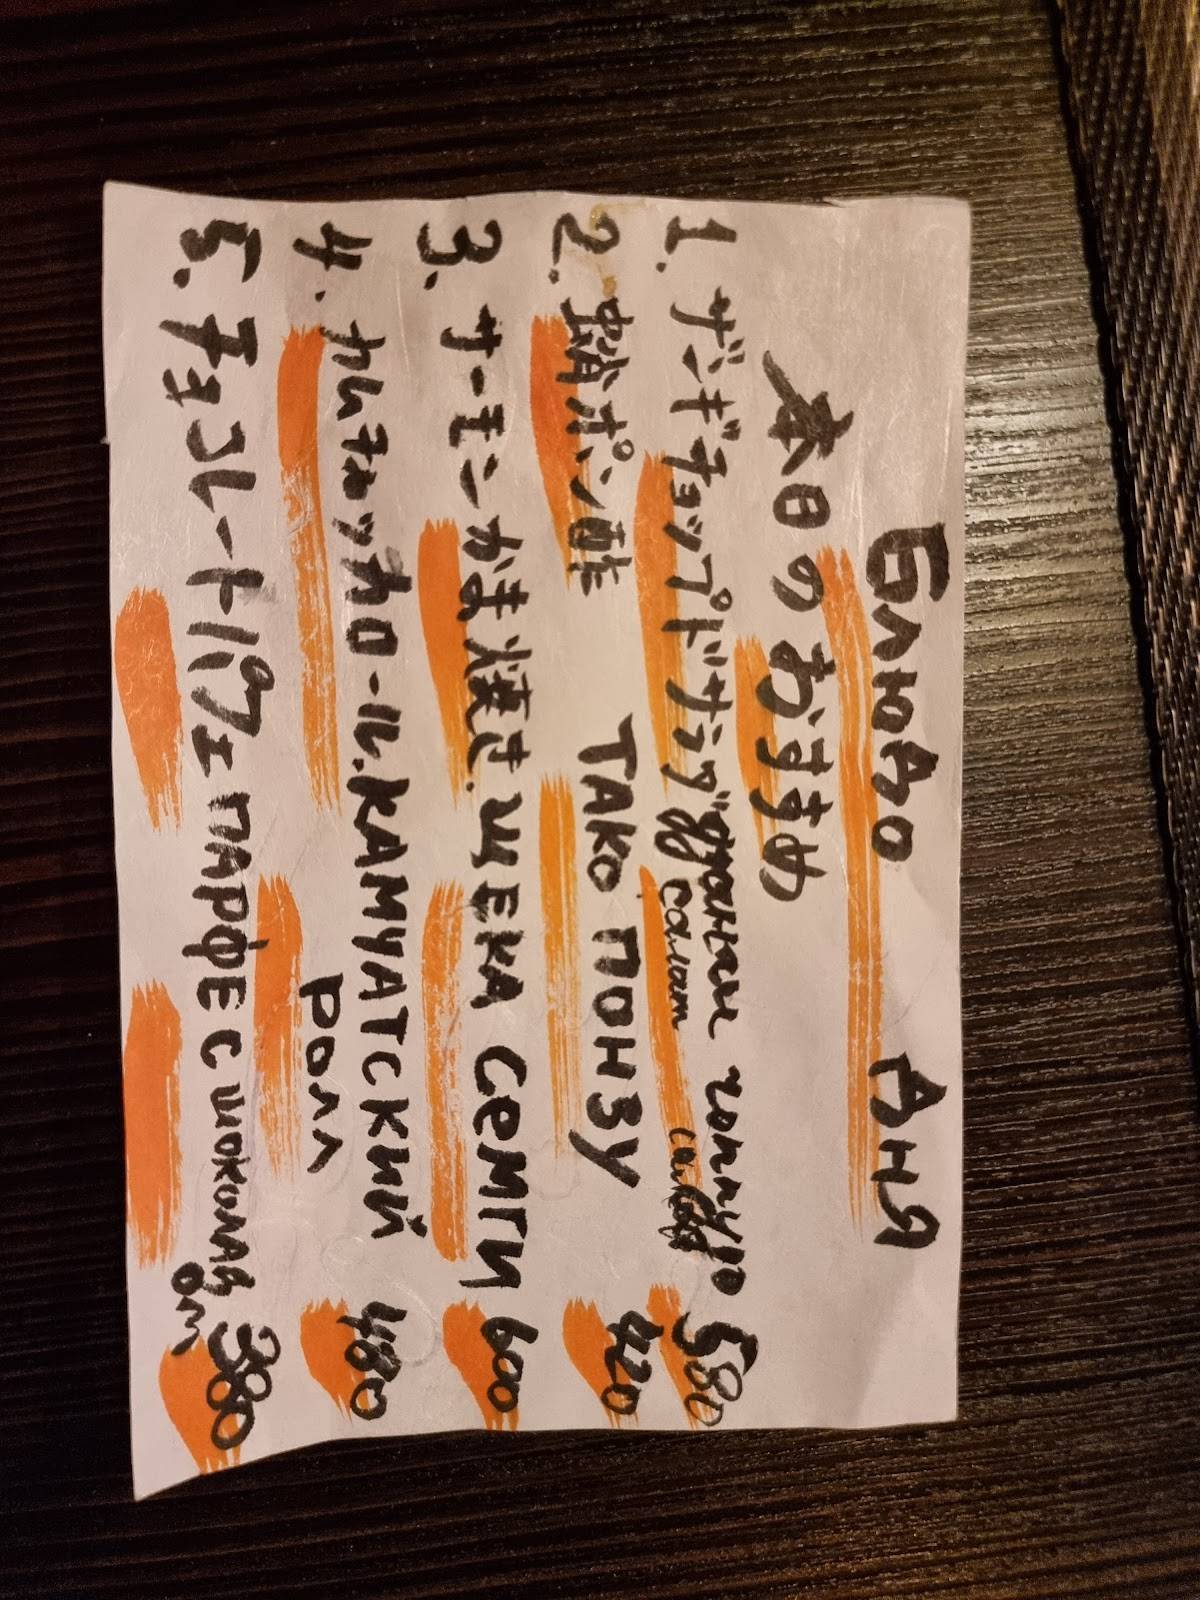 Блюдо дня
本日のおすすめ
1. ザンギチョップドサラダ чоппуд 580
салат
2. 蛸ポン酢 ТАКО ПОНЗУ 420
3. サーモンかま焼き. ЩЕКА СЕМГИ 600
4. カムチャツカロール. КАМЧАТСКИЙ 480
РОЛЛ
5. チョコレートパフェ ПАРФЕ С ШОКОЛАД 380
ом